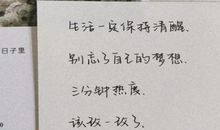 日子里
生活一定保持清醒.
别忘了自己的梦想.
三分钟热度.
该改一改了.